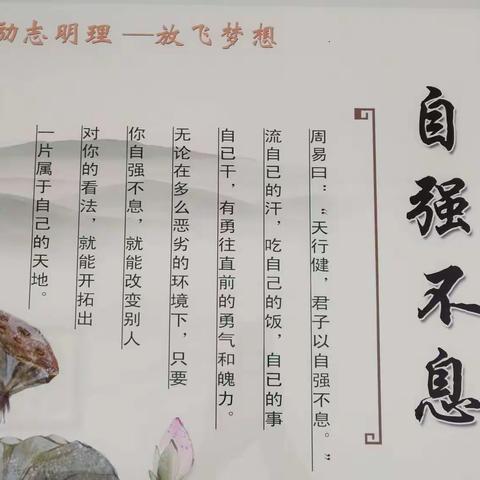 励志明理 —放飞梦想
自强不息
周易曰：“天行健，君子以自强不息。”
流自已的汗，吃自己的饭，自已的事
自已干，有勇往直前的勇气和魄力。
无论在多么恶劣的环境下，只要
你自强不息，就能改变别人
对你的看法，就能开拓出
一片属于自己的天地。